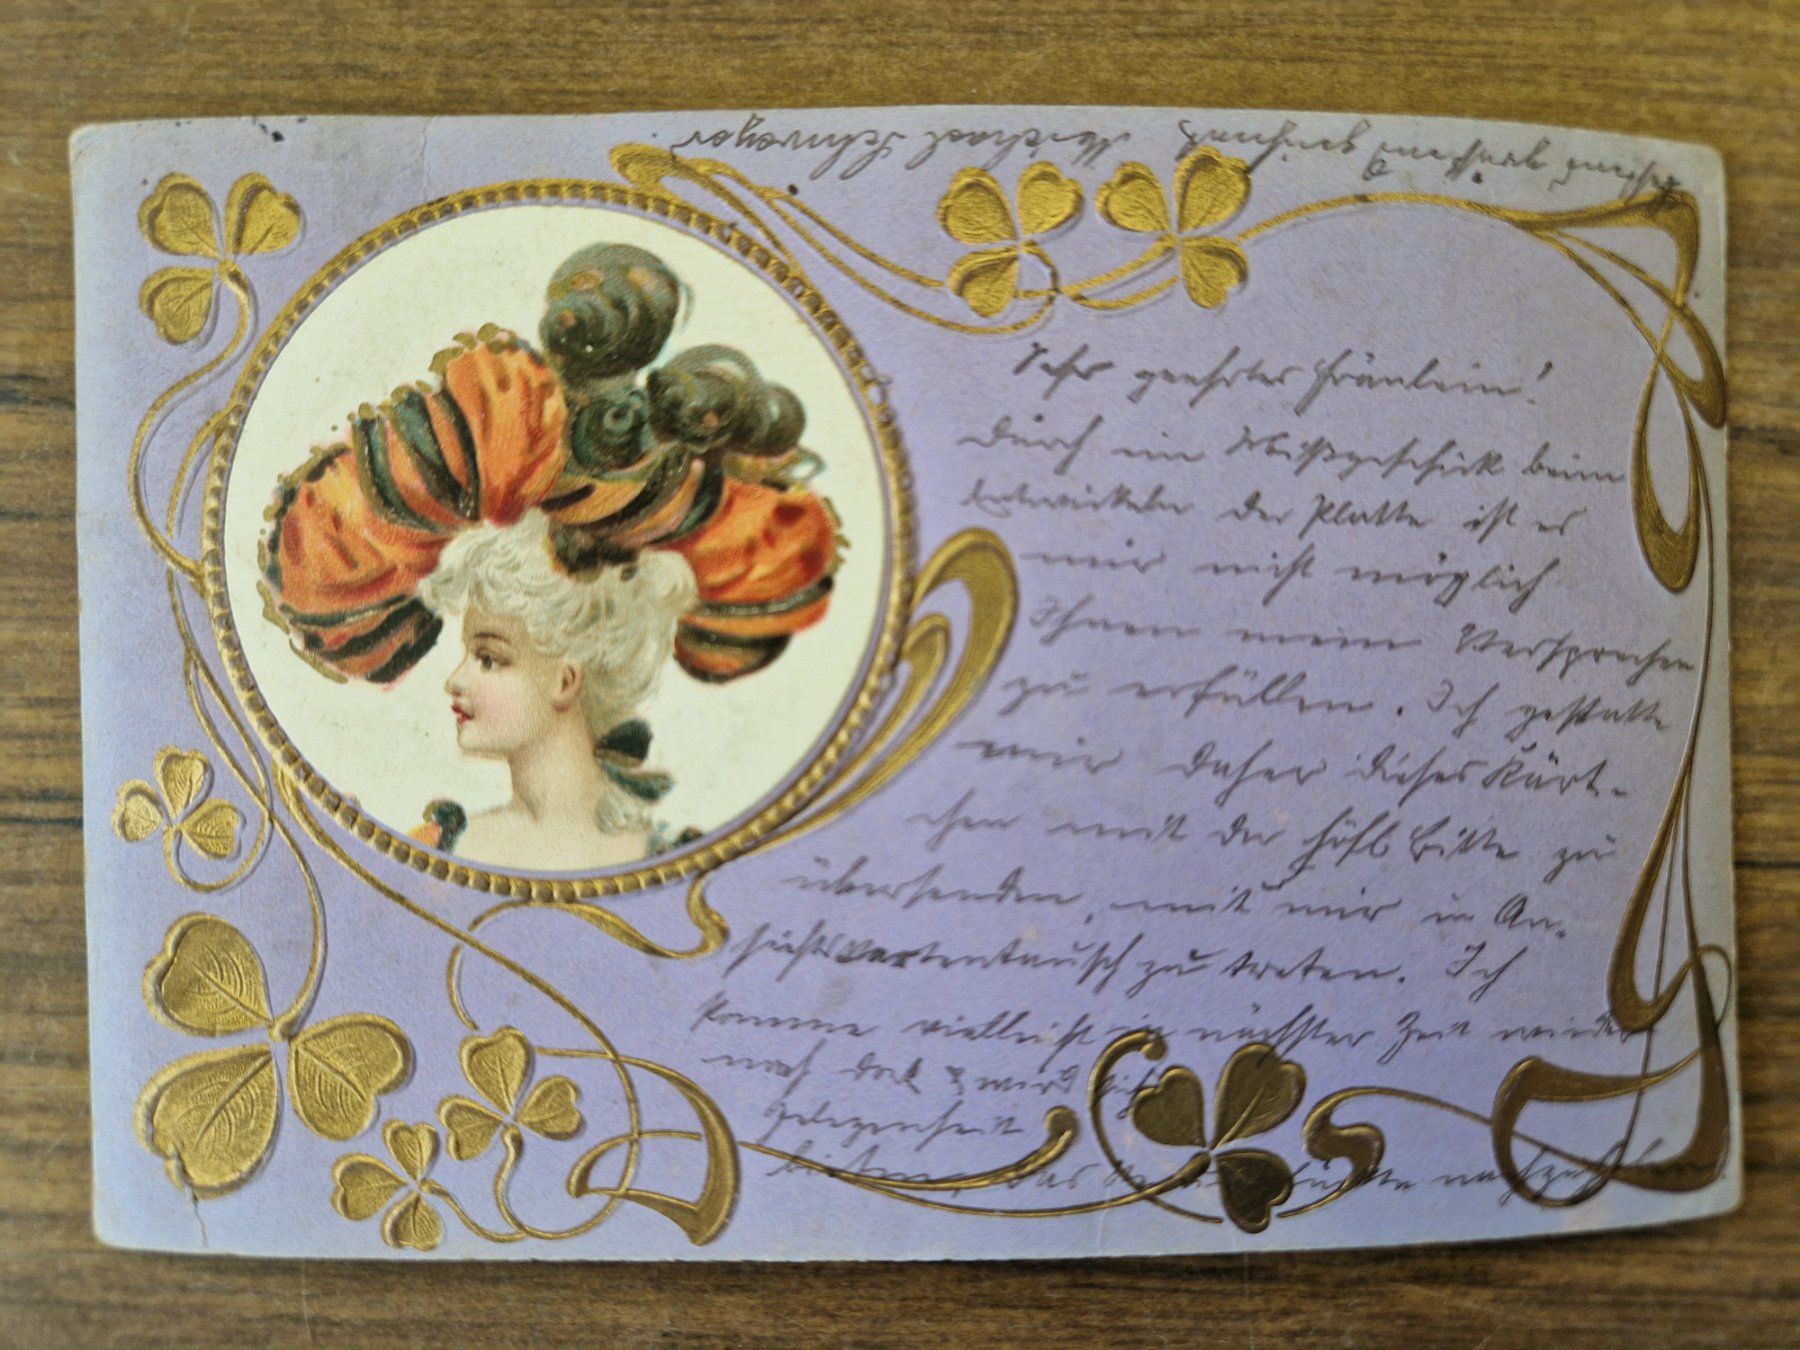 Sehr geehrtes Fräulein!
Durch ein Mißgeschick beim
Entwickeln der Platte ist es
mir nicht möglich
Ihnen mein Versprechen
zu erfüllen. Ich gestatte
mir daher dieses Kärt-
chen mit der höfl. Bitte zu
übersenden, mit mir in An-
sichtskartentausch zu treten. Ich
komme vielleicht in nächster Zeit wieder
nach dort & wird sich
Gelegenheit
bieten, das nachzuholen
Michael